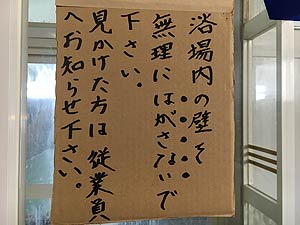 浴場内の壁を
無理にはがさないで
下さい。
見かけた方は従業員
へお知らせ下さい。